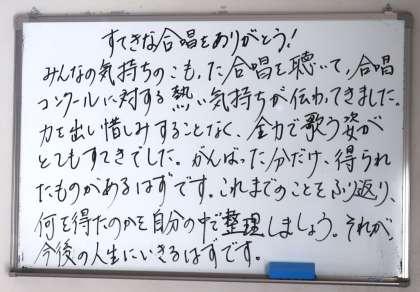 すてきな合唱をありがとう!
みんなの気持ちのこもった合唱を聴いて、合唱
コンクールに対する熱い気持ちが伝わってきました。
力を出し惜しみすることなく、全力で歌う姿が
とてもすてきでした。がんばった分だけ、得られ
たものがあるはずです。これまでのことをふり返り、
何を得たのかを自分の中で整理しましょう。それが、
今後の人生にいきるはずです。